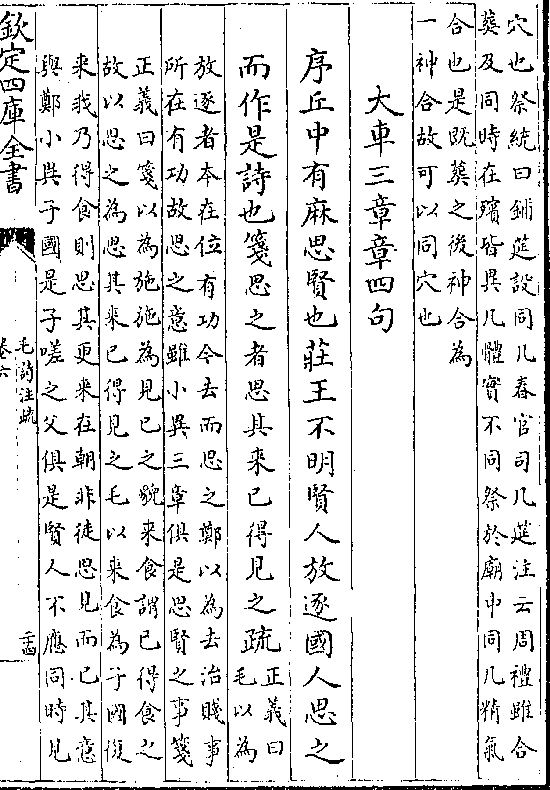 穴也祭統曰鋪筵設同几春官司几筵注云周禮雖合
葬及同時在殯皆異几體實不同祭於廟中同几精氣
合也是既葬之後神合為
一神合故可以同穴也
大車三章章四句
序丘中有麻思賢也莊王不明賢人放逐國人思之
而作是詩也箋思之者思其來已得見之疏正義曰
毛以為
放逐者本在位有功今去而思之鄭以為去治賤事
所在有功故思之意雖小異三章俱是思賢之事箋
正義曰箋以為施施為見已之貌來食謂已得食之
故以思之為思其來已得見之毛以來食為子國復
來我乃得食則思其更來在朝非徒思見而已其意
與鄭小異子國是子嗟之父俱是賢人不應同時見
欽定四庫全書
毛詩注疏
卷六
二十四